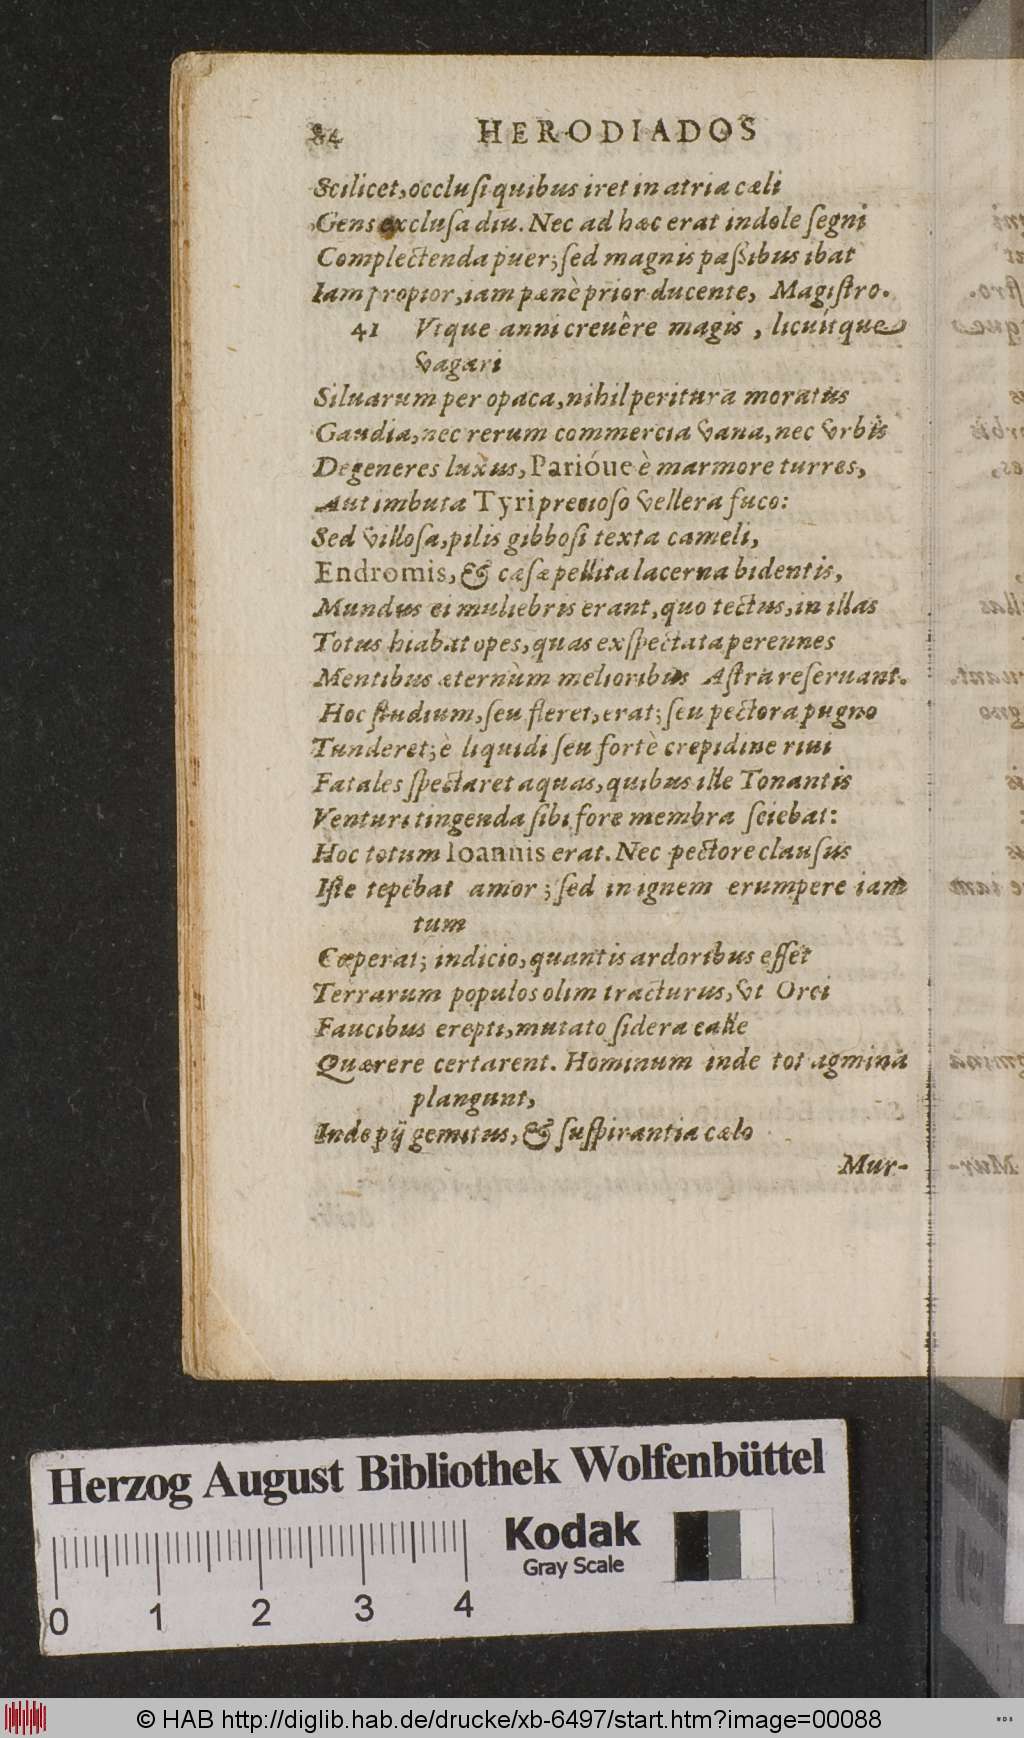 84 HERODIADOS
Scilicet, occlusi quibus iret in atria cæli
Gens exclusa diu. Nec ad hæc erat indole segni
Complectenda puer; sed magnis passibus ibat
Iam propior, iam pæne prior ducente, Magistro.
41 Vtque anni creuêre magis, licuitque
vagari
Siluarum per opaca, nihil peritura moratus
Gaudia, nec rerum commercia vana, nec vrbis
Degeneres luxus, Parióue è marmore turres,
Aut imbuta Tyri precioso vellera fuco:
Sed villosa, pilis gibbosi texta cameli,
Endromis, & cæsæ pellita lacerna bidentis,
Mundus ei muliebris erant, quo tectus, in illas
Totus hiabat opes, quas exspectata perennes
Mentibus æternùm melioribus Astra reseruant.
Hoc studium, seu fleret, erat; seu pectora pugno
Tunderet; è liquidi seu fortè crepidine riui
Fatales spectaret aquas, quibus ille Tonantis
Venturi tingenda sibi fore membra sciebat:
Hoc totum Ioannis erat. Nec pectore clausus
Iste tepebat amor; sed in ignem erumpere iam
tum
Cœperat; indicio, quantis ardoribus esset
Terrarum populos olim tracturus, vt Orci
Faucibus erepti, mutato sidera calle
Quærere certarent. Hominum inde tot agmina
plangunt,
Inde pij gemitus, & suspirantia cælo
Mur-
Herzog August Bibliothek Wolfenbüttel
Kodak
Gray Scale
0 1 2 3 4
© HAB http://diglib.hab.de/drucke/xb-6497/start.htm?image=00088